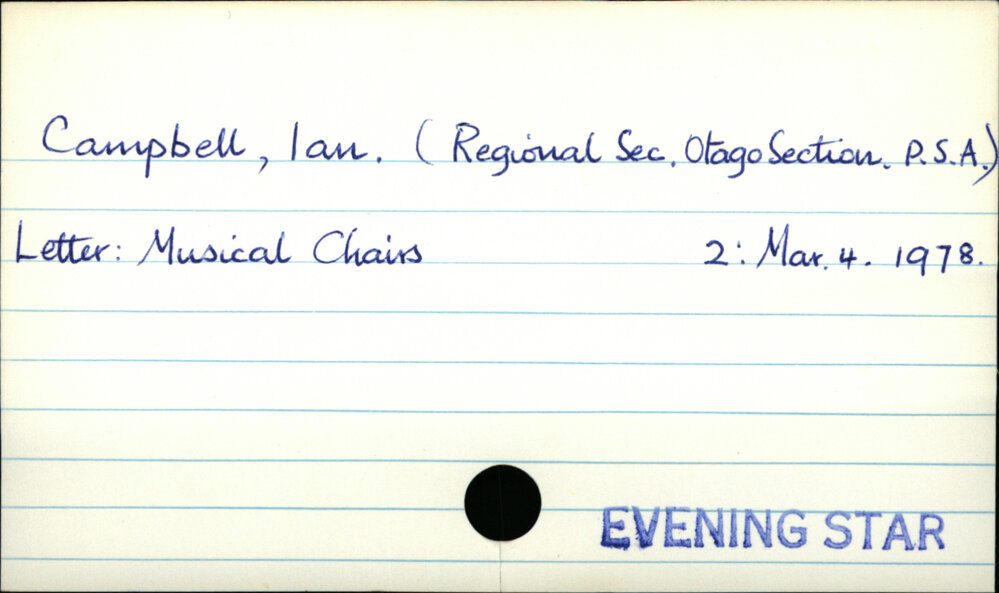 Campbell, Ian. (Regional Sec. Otago Section. P.S.A.)
Letter: Musical Chairs 2: Mar. 4. 1978.
EVENING STAR